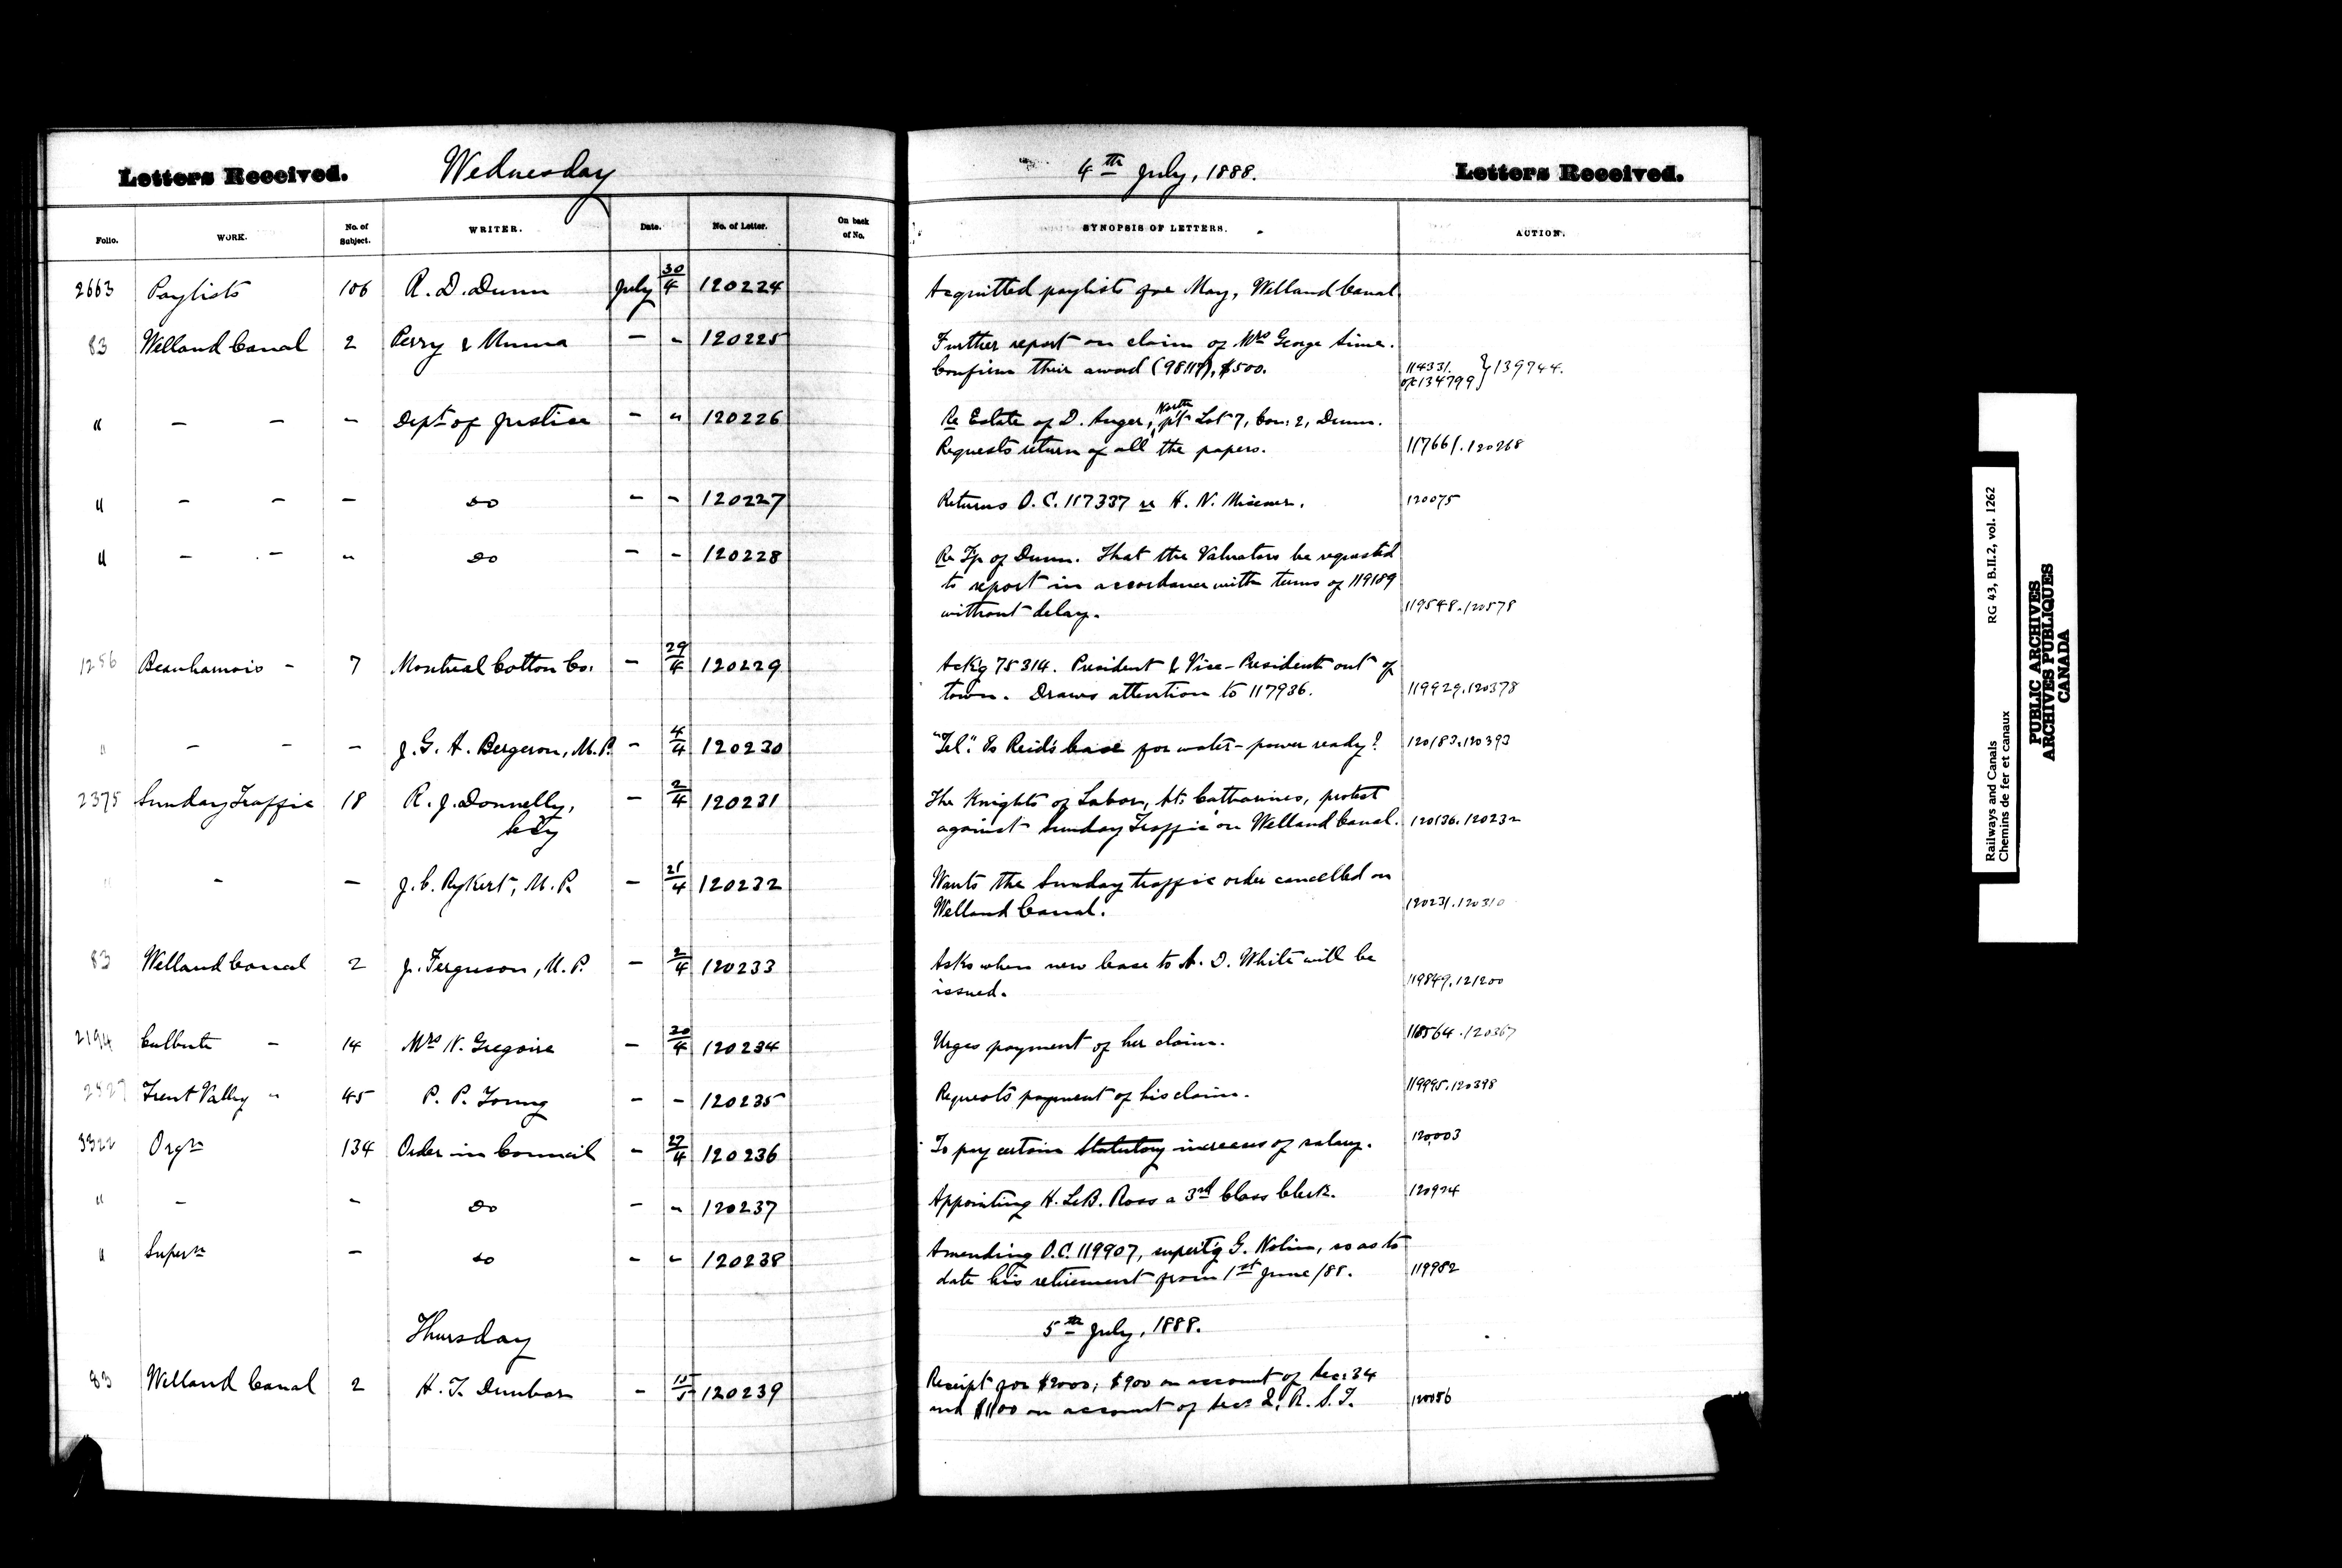 Letters Received. Wednesday 4th July, 1888. Letters Received.
Folio. WORK. No. of Subject. WRITER. Date. No. of Letter. On back of No. SYNOPSIS OF LETTERS. ACTION.
2663 Paylists 106 R. D. Dunn July 30/4 120224 Acquitted paylists for May, Welland Canal.
83 Welland Canal 2 Perry & Munna - " 120225 Further report on claim of Mrs George Sime.
Confirm their award (98117), $500. 114331. 134799 } 139744.
" - - - Dept of Justice - " 120226 Re Estate of D. Auger, North pt Lot 7, Con: 2, Dunn.
Requests return of all the papers. 117661. 120268
" - - - do - - 120227 Returns O.C. 117337 re H. N. Misener. 120075
" - - " do - - 120228 Re Tp of Dunn. That the Valuators be requested
to report in accordance with terms of 119189
without delay. 119548. 120578
1256 Beauharnois - 7 Montreal Cotton Co. - 29/4 120229 Ackg 75314. President & Vice-President out of
town. Draws attention to 117936. 119929. 120378
" - - - J. G. H. Bergeron, M.P. - 4/4 120230 "Tel." Is Reid's lease for water-power ready? 120183. 120393
2375 Sunday Traffic 18 R. J. Donnelly, - 2/4 120231 The Knights of Labor, St. Catharines, protest
Secy against Sunday Traffic on Welland Canal. 120136. 120232
" - - J. C. Rykert, M.P. - 25/4 120232 Wants the Sunday traffic order cancelled on
Welland Canal. 120231. 120310
83 Welland Canal 2 J. Ferguson, M.P. - 2/4 120233 Asks when new lease to A. D. White will be
issued. 119849. 121200
2194 Culbute - 14 Mrs N. Gregoire - 20/4 120234 Urges payment of her claim. 118564. 120367
Trent Valley " 45 P. P. Young - - 120235 Requests payment of his claim. 119995. 120398
3322 Orgn 134 Order in Council - 27/4 120236 To pay certain Statutory increases of salary. 120003
" - - do - " 120237 Appointing H. LeB. Ross a 3rd Class Clerk. 120924
" Supern - do - " 120238 Amending O.C. 119907, supert'g G. Nolin, so as to
date his retirement from 1st June/88. 119982
Thursday 5th July, 1888.
83 Welland Canal 2 H. T. Dunbar - 120239 Receipt for $2000; $900 on account of Sec: 34
and $1100 on account of Sec: 2, R. S. T. 120056
Railways and Canals RG 43, B.II.2, vol. 1262
Chemins de fer et canaux
PUBLIC ARCHIVES
ARCHIVES PUBLIQUES
CANADA